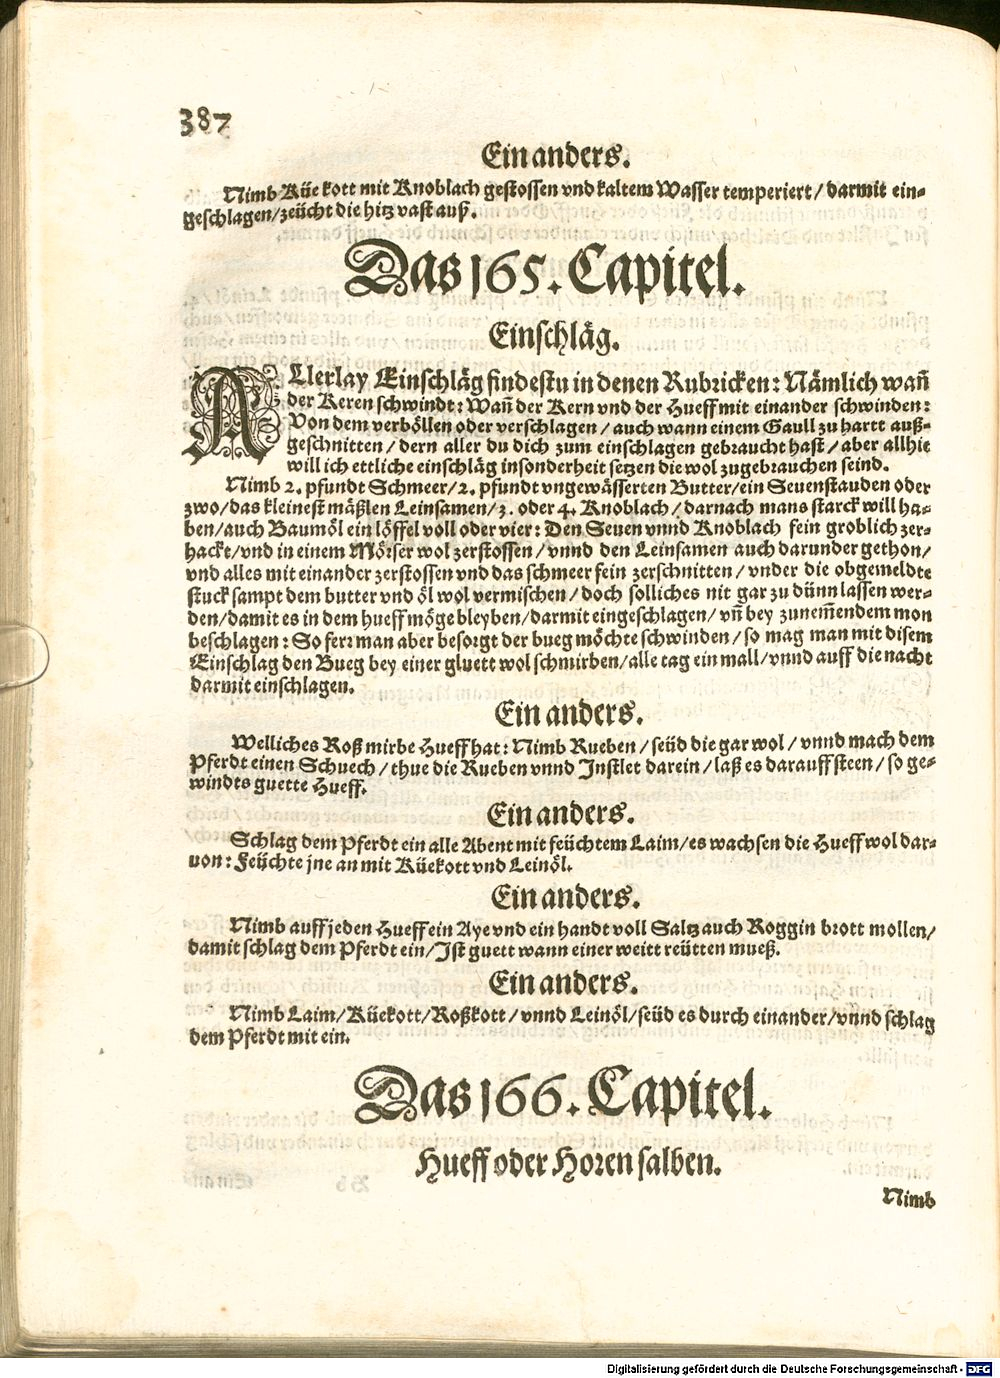 387
Ein anders.
Nimb Küe kott mit Knoblach gestossen vnd kaltem Wasser temperiert / darmit ein-
geschlagen / zeücht die hitz vast auß.
Das 165. Capitel.
Einschläg.
ALlerlay Einschläg findestu in denen Rubricken: Nämlich wañ
der Keren schwindt: Wañ der Kern vnd der Hueff mit einander schwinden:
Von dem verböllen oder verschlagen / auch wann einem Gaull zu hartt auß-
geschnitten / dern aller du dich zum einschlagen gebraucht hast / aber allhie
will ich ettliche einschläg insonderheit setzen die wol zugebrauchen seind.
Nimb 2. pfundt Schmeer / 2. pfundt vngewässerten Butter / ein Seuenstauden oder
zwo / das kleinest mäßlen Leinsamen / 3. oder 4. Knoblach / darnach mans starck will ha-
ben / auch Baumöl ein löffel voll oder vier: Den Seuen vnnd Knoblach fein groblich zer-
hackt / vnd in einem Mörser wol zerstossen / vnnd den Leinsamen auch darunder gethon /
vnd alles mit einander zerstossen vnd das schmeer fein zerschnitten / vnder die obgemeldte
stuck sampt dem butter vnd öl wol vermischen / doch solliches nit gar zu dünn lassen wer-
den / damit es in dem hueff möge bleyben / darmit eingeschlagen / vñ bey zunem̄endem mon
beschlagen: So ferr man aber besorgt der bueg möchte schwinden / so mag man mit disem
Einschlag den Bueg bey einer gluett wol schmirben / alle tag ein mall / vnnd auff die nacht
darmit einschlagen.
Ein anders.
Welliches Roß mirbe Hueff hat: Nimb Rueben / seüd die gar wol / vnnd mach dem
Pferdt einen Schuech / thue die Rueben vnnd Instlet darein / laß es darauff steen / so ge-
windts guette Hueff.
Ein anders.
Schlag dem Pferdt ein alle Abent mit feüchtem Laim / es wachsen die Hueff wol dar-
uon: Feüchte jne an mit Küekott vnd Leinöl.
Ein anders.
Nimb auff jeden Hueff ein Aye vnd ein handt voll Saltz auch Roggin brott mollen /
damit schlag dem Pferdt ein / Ist guett wann einer weitt reütten mueß.
Ein anders.
Nimb Laim / Küekott / Roßkott / vnnd Leinöl / seüd es durch einander / vnnd schlag
dem Pferdt mit ein.
Das 166. Capitel.
Hueff oder Horen salben.
Nimb
Digitalisierung gefördert durch die Deutsche Forschungsgemeinschaft - DFG